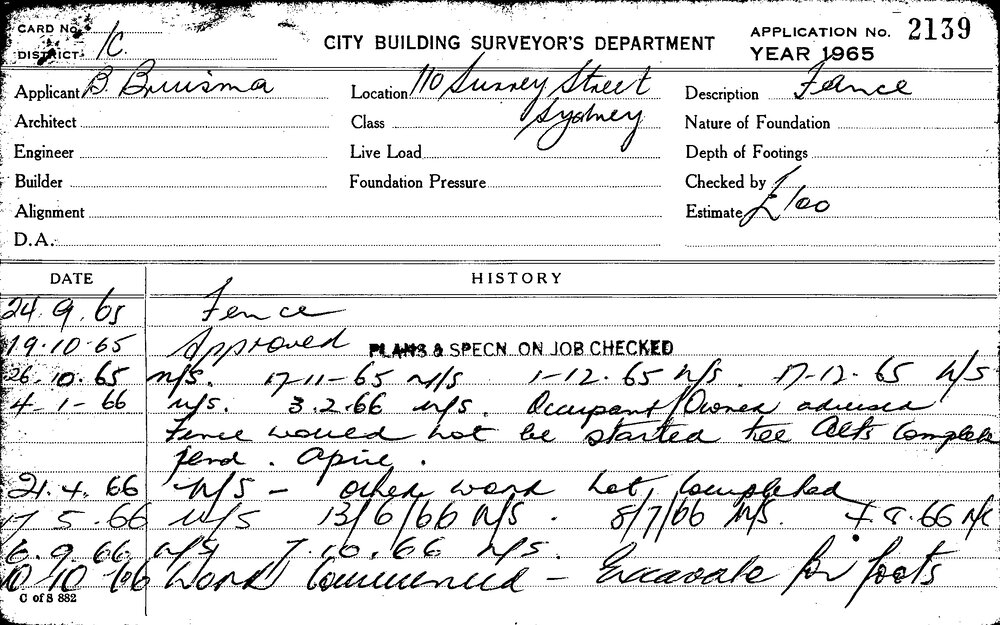 CARD No. 1C.
DISTRICT
CITY BUILDING SURVEYOR'S DEPARTMENT
APPLICATION No. 2139
YEAR 1965
Applicant B. Bruisma
Location 110 Surrey Street
Sydney
Description Fence
Architect
Class
Nature of Foundation
Engineer
Live Load
Depth of Footings
Builder
Foundation Pressure
Checked by
Alignment
Estimate £100
D.A.
DATE HISTORY
24.9.65 Fence
19.10.65 Approved PLANS & SPECN. ON JOB CHECKED
26.10.65 N/S. 17-11-65 N/S 1-12.65 N/S. 17-12.65 N/S
4-1-66 N/S. 3.2.66 N/S. Occupant/Owner advised
Fence would not be started till Alts Complete
. April.
21.4.66 N/S - other work not completed
17.5.66 N/S 13/6/66 N/S. 8/7/66 N/S. 4.8.66 N/S
6.9.66 N/S 7.10.66 N/S.
10.10.66 Work Commenced - Excavate for foots
C of S 882